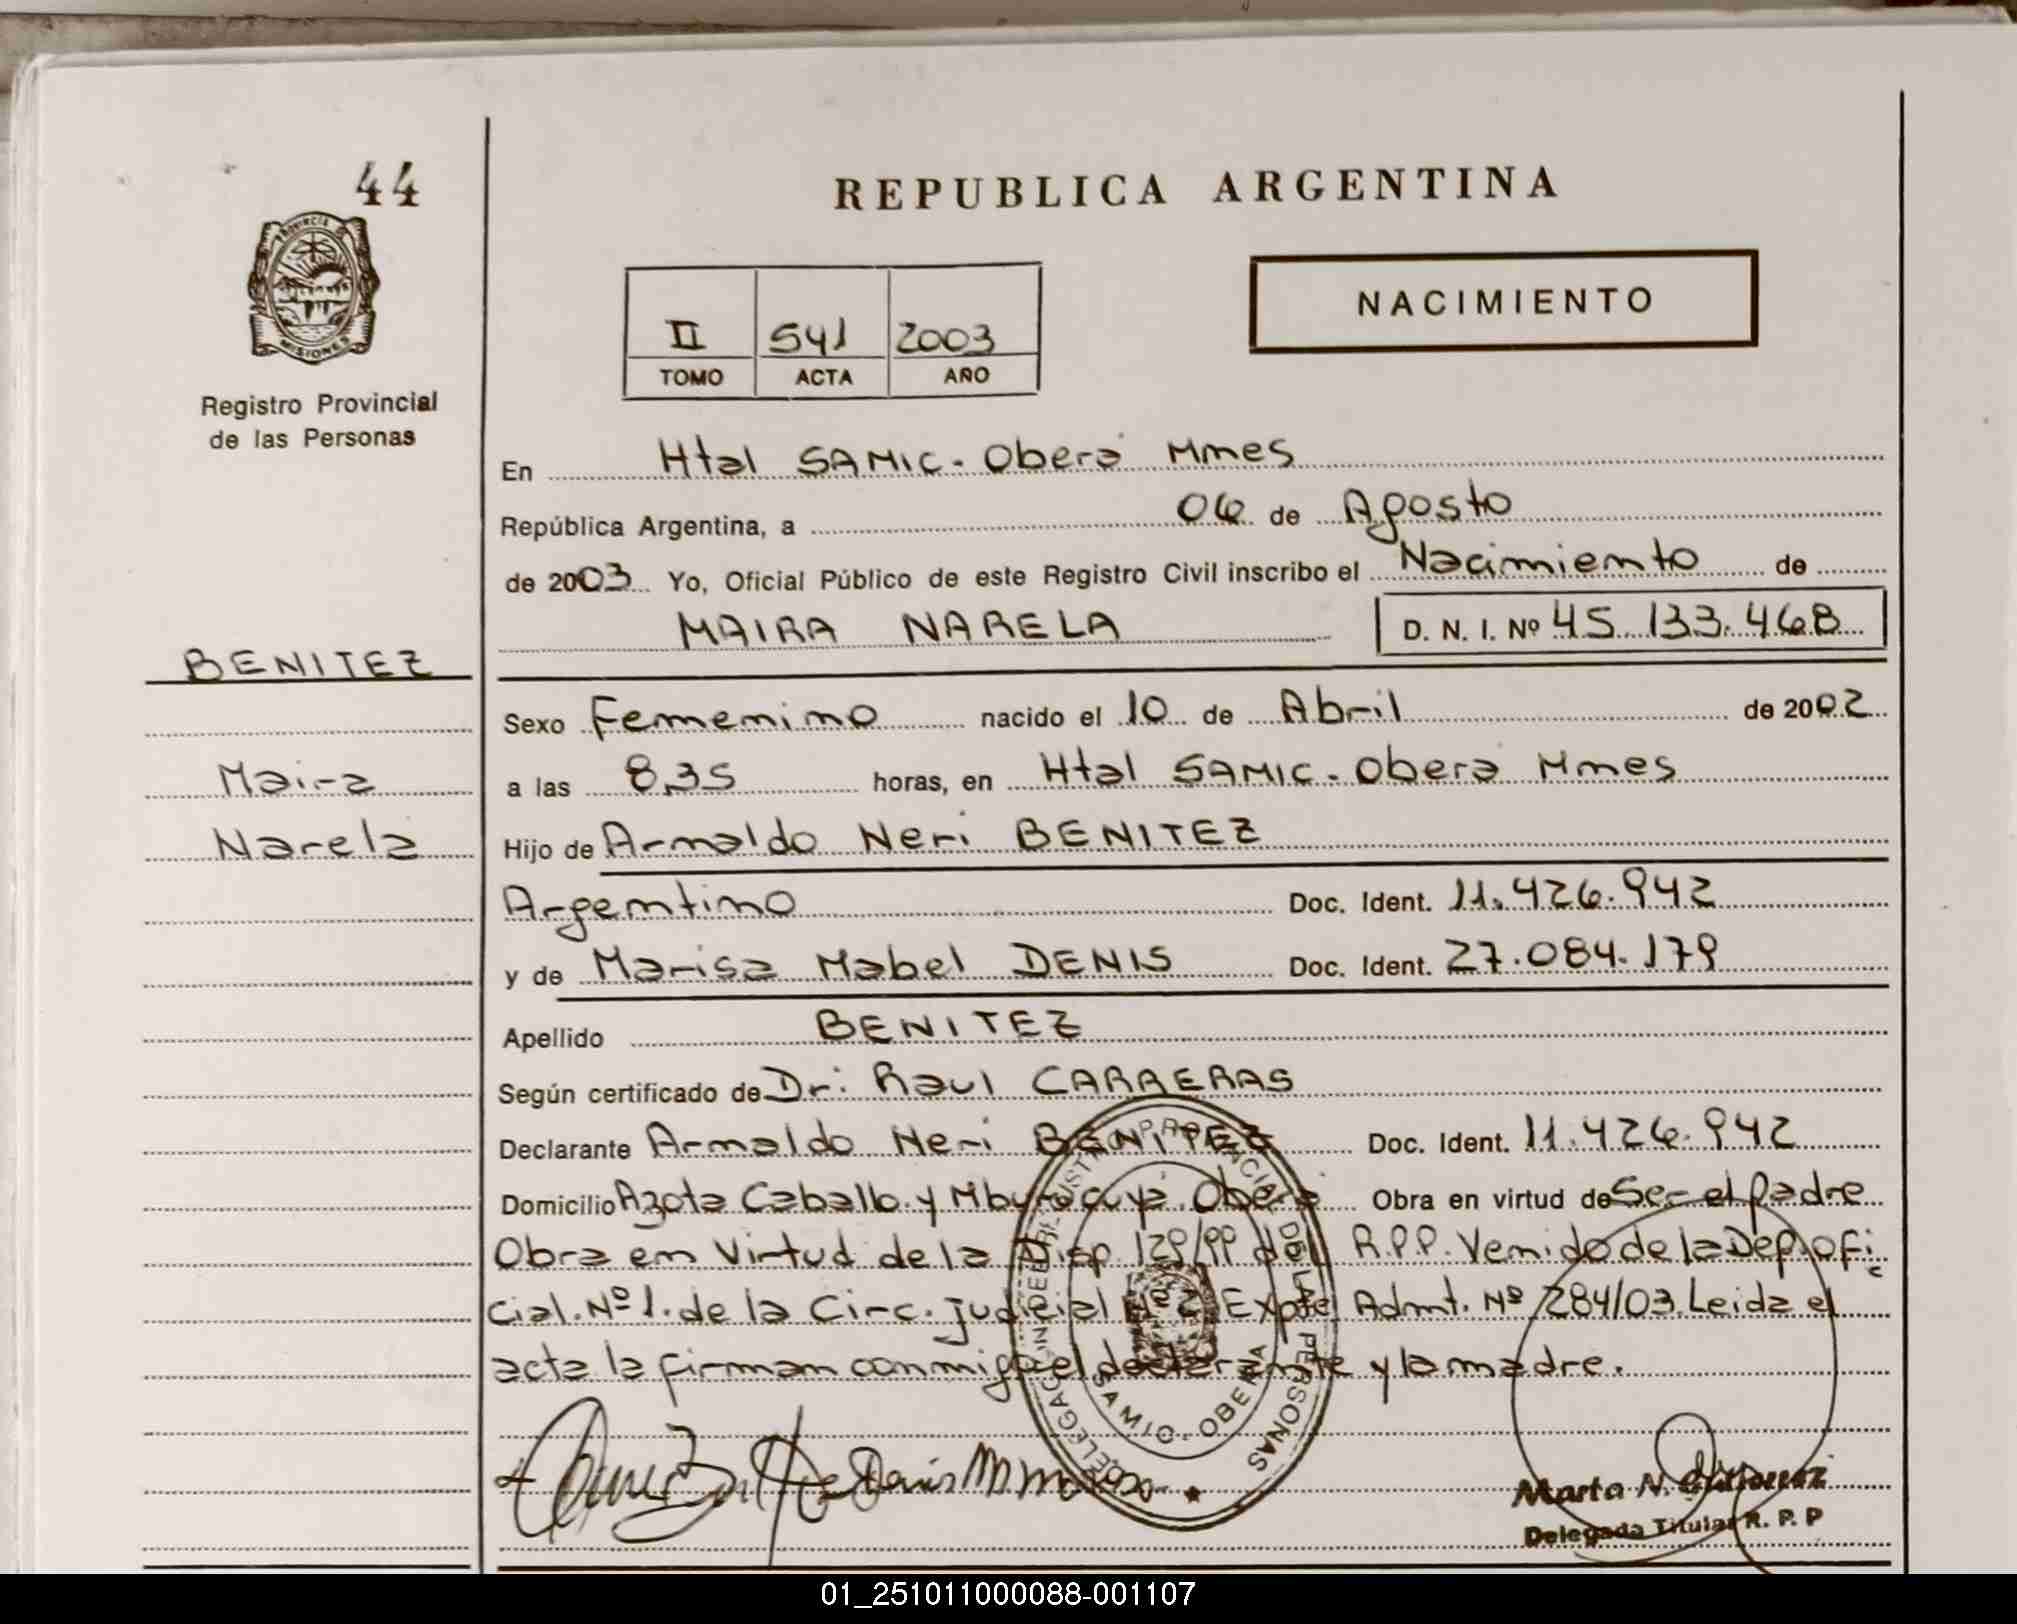 44
REPUBLICA ARGENTINA
NACIMIENTO
II 541 2003
TOMO ACTA AÑO
PROVINCIA D MISIONES
Registro Provincial
de las Personas
En Htal SAMIC. Oberá Mnes
República Argentina, a 06 de Agosto
de 2003 Yo, Oficial Público de este Registro Civil inscribo el Nacimiento de
MAIRA NARELA D. N. I. Nº 45.133.468
BENITEZ
Sexo Femenino nacido el 10 de Abril de 2002
Maira
a las 8,35 horas, en Htal SAMIC. Oberá Mnes
Narela
Hijo de Arnaldo Neri BENITEZ
Argentino Doc. Ident. 11.426.942
y de Marisa Mabel DENIS Doc. Ident. 27.084.179
Apellido BENITEZ
Según certificado de Dr: Raul CARRERAS
Declarante Arnaldo Neri BENITEZ Doc. Ident. 11.426.942
Domicilio Azota Caballo y Mburucuyá. Oberá Obra en virtud de Ser el Padre
Obra en Virtud de la Disp. 129/99 del R.P.P. Venido de la Dep. ofi
cial. Nº 1. de la Circ. judicial Expte Admt. Nº 1284/03. Leida el
acta la firman conmigo el declarante y la madre.
DELEGACION DEL REGISTRO PROVINCIAL DE LAS PERSONAS
SAMIC - OBERA
Denis M
Marta N. Gutierrez
Delegada Titular R. P. P
01_251011000088-001107